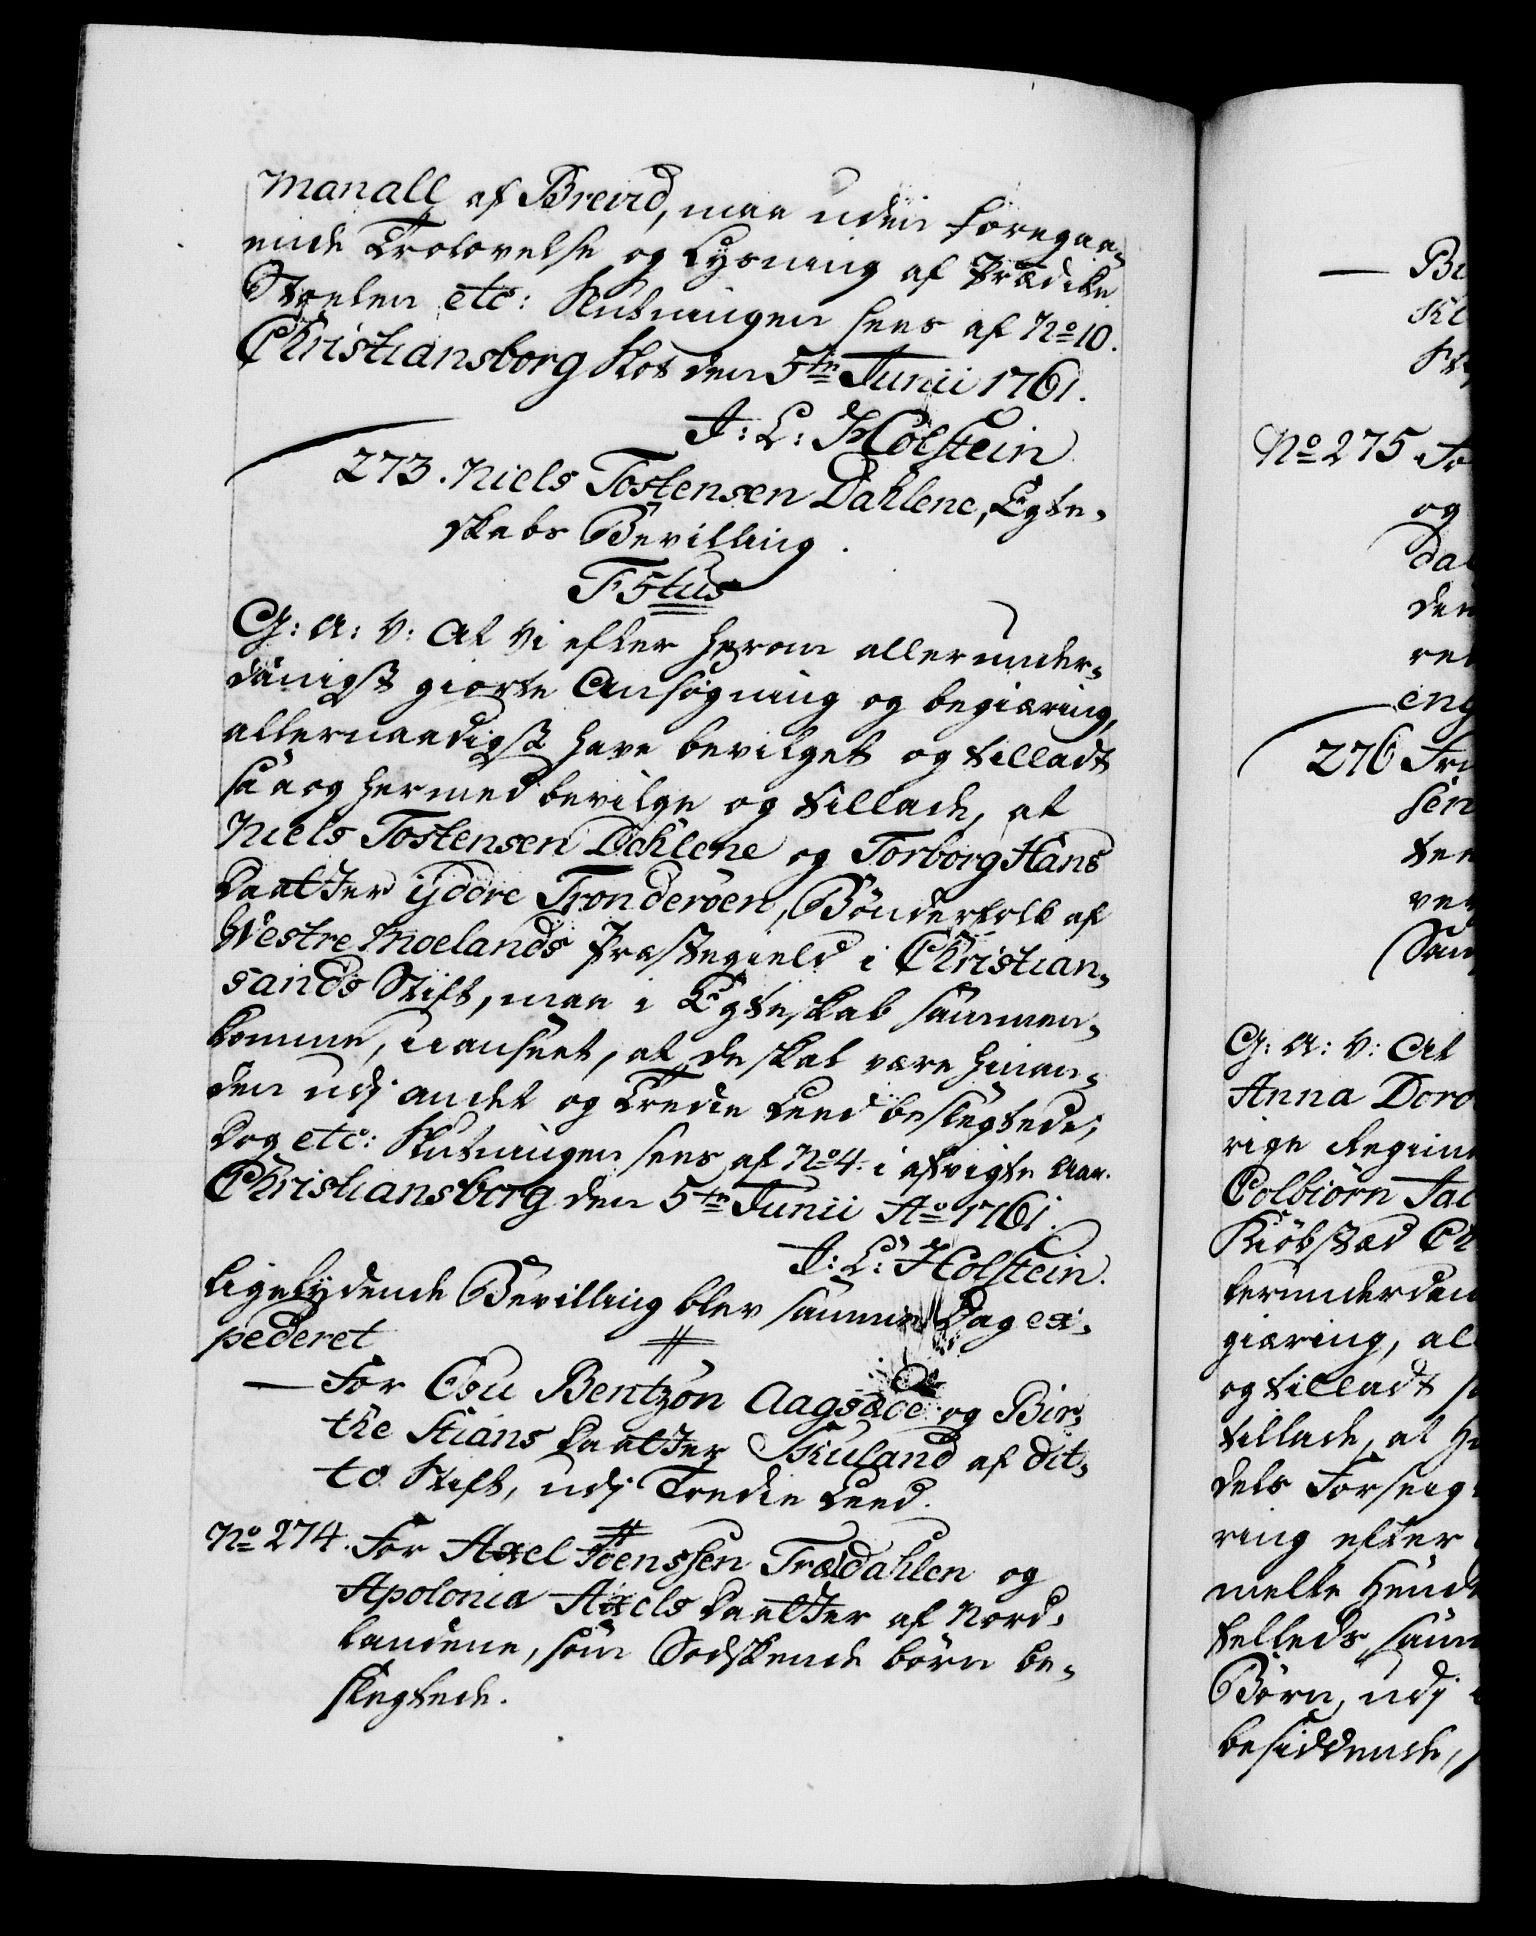 Manall af Brevid, maa uden foregaa-
ende Trolovelse og Lysning af Prædike
Stoelen etc: Slutningen sees af No 10.
Christiansborg Slot den 5te Junii 1761.
J: L: Holstein
273. Niels Tostensen Dahlene, Egte-
skabs Bevilling.
F 5tus
G: A: V: At Vi efter herom allerunder-
danigst giorte Ansøgning og begiæring,
allernaadigst have bevilget og tilladt
saa og hermed bevilge og tillade, at
Niels Tostensen Dahlene og Torborg Hans
Daatter ÿdere Tronderöen, Bönderfolk af
Westre Moelands Præstegield i Christian-
sands Stift, maa i Egteskab sammen-
komme, uanseet, at de skal være hinan-
den udj andet og Tredie Leed beslegtede;
Dog etc: Slutningen sees af No 4. i afvigte Aar.
Christiansborg den 5te Junii Ao 1761.
J: L: Holstein.
Ligelydende Bevilling blev samme Dag ex-
pederet
— For Osu Bentzon Aagsæde og Bir-
the Stians Daatter Skuland af dit-
to Stift, udj Tredie Leed.
No 274. For Axel Joenssen Trældahlen og
Apolonia Axels Daatter af Nord-
landene, som Södskende börn be-
slegtede.
— 
No 275. Fo
og
den
eng
276
G: A: V: At
Anna Doro
rige Regim
Colbiörn Jac
Kiöbstæd Ch
lerunderdan
giæring, al
og tilladt
tillade, at
dels Forseig
ring efter
melte Hend
felleds sam
Börn, udj
besiddende,